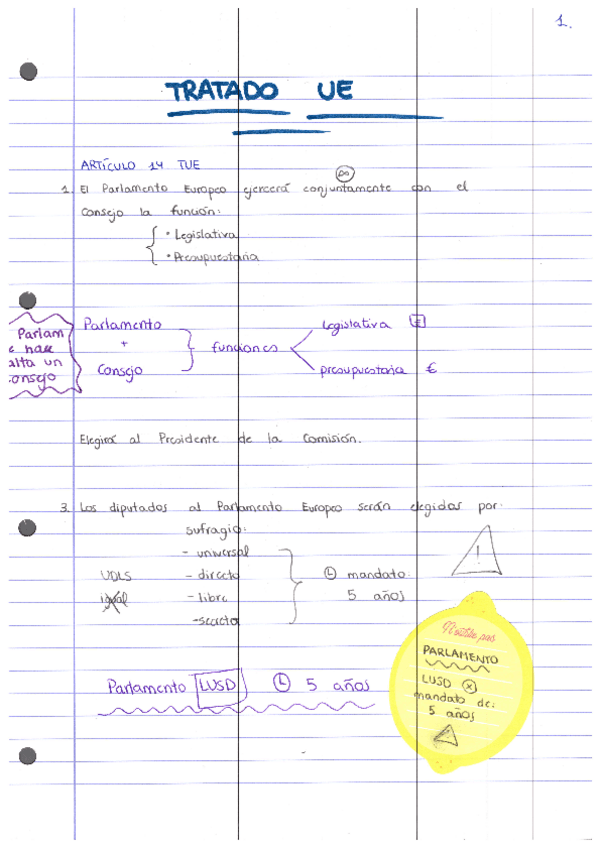 1.
TRATADO UE
ARTÍCULO 14 TUE
1. El Parlamento Europeo ejercerá conjuntamente con el
Consejo la función:
• Legislativa
• Presupuestaria
Parlam
e hace
alta un
onsejo
Parlamento
+
Consejo
funciones
legislativa
presupuestaria €
Elegirá al Presidente de la Comisión.
3. Los diputados al Parlamento Europeo serán elegidos por:
sufragio:
- universal
UDLS - directo
igual - libre
- secreto
mandato:
5 años
!
Parlamento LUSD L 5 años
N'oublie pas
PARLAMENTO
LUSD
mandato de:
5 años